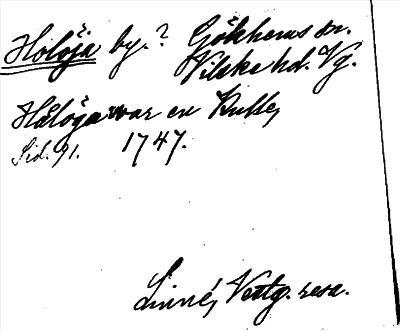 Holöja by.? Gökhems sn.
Vilske hd. Vg.
Hålöja war en Kulle,
Sid. 91. 1747.
Linné, Vestg. resa.